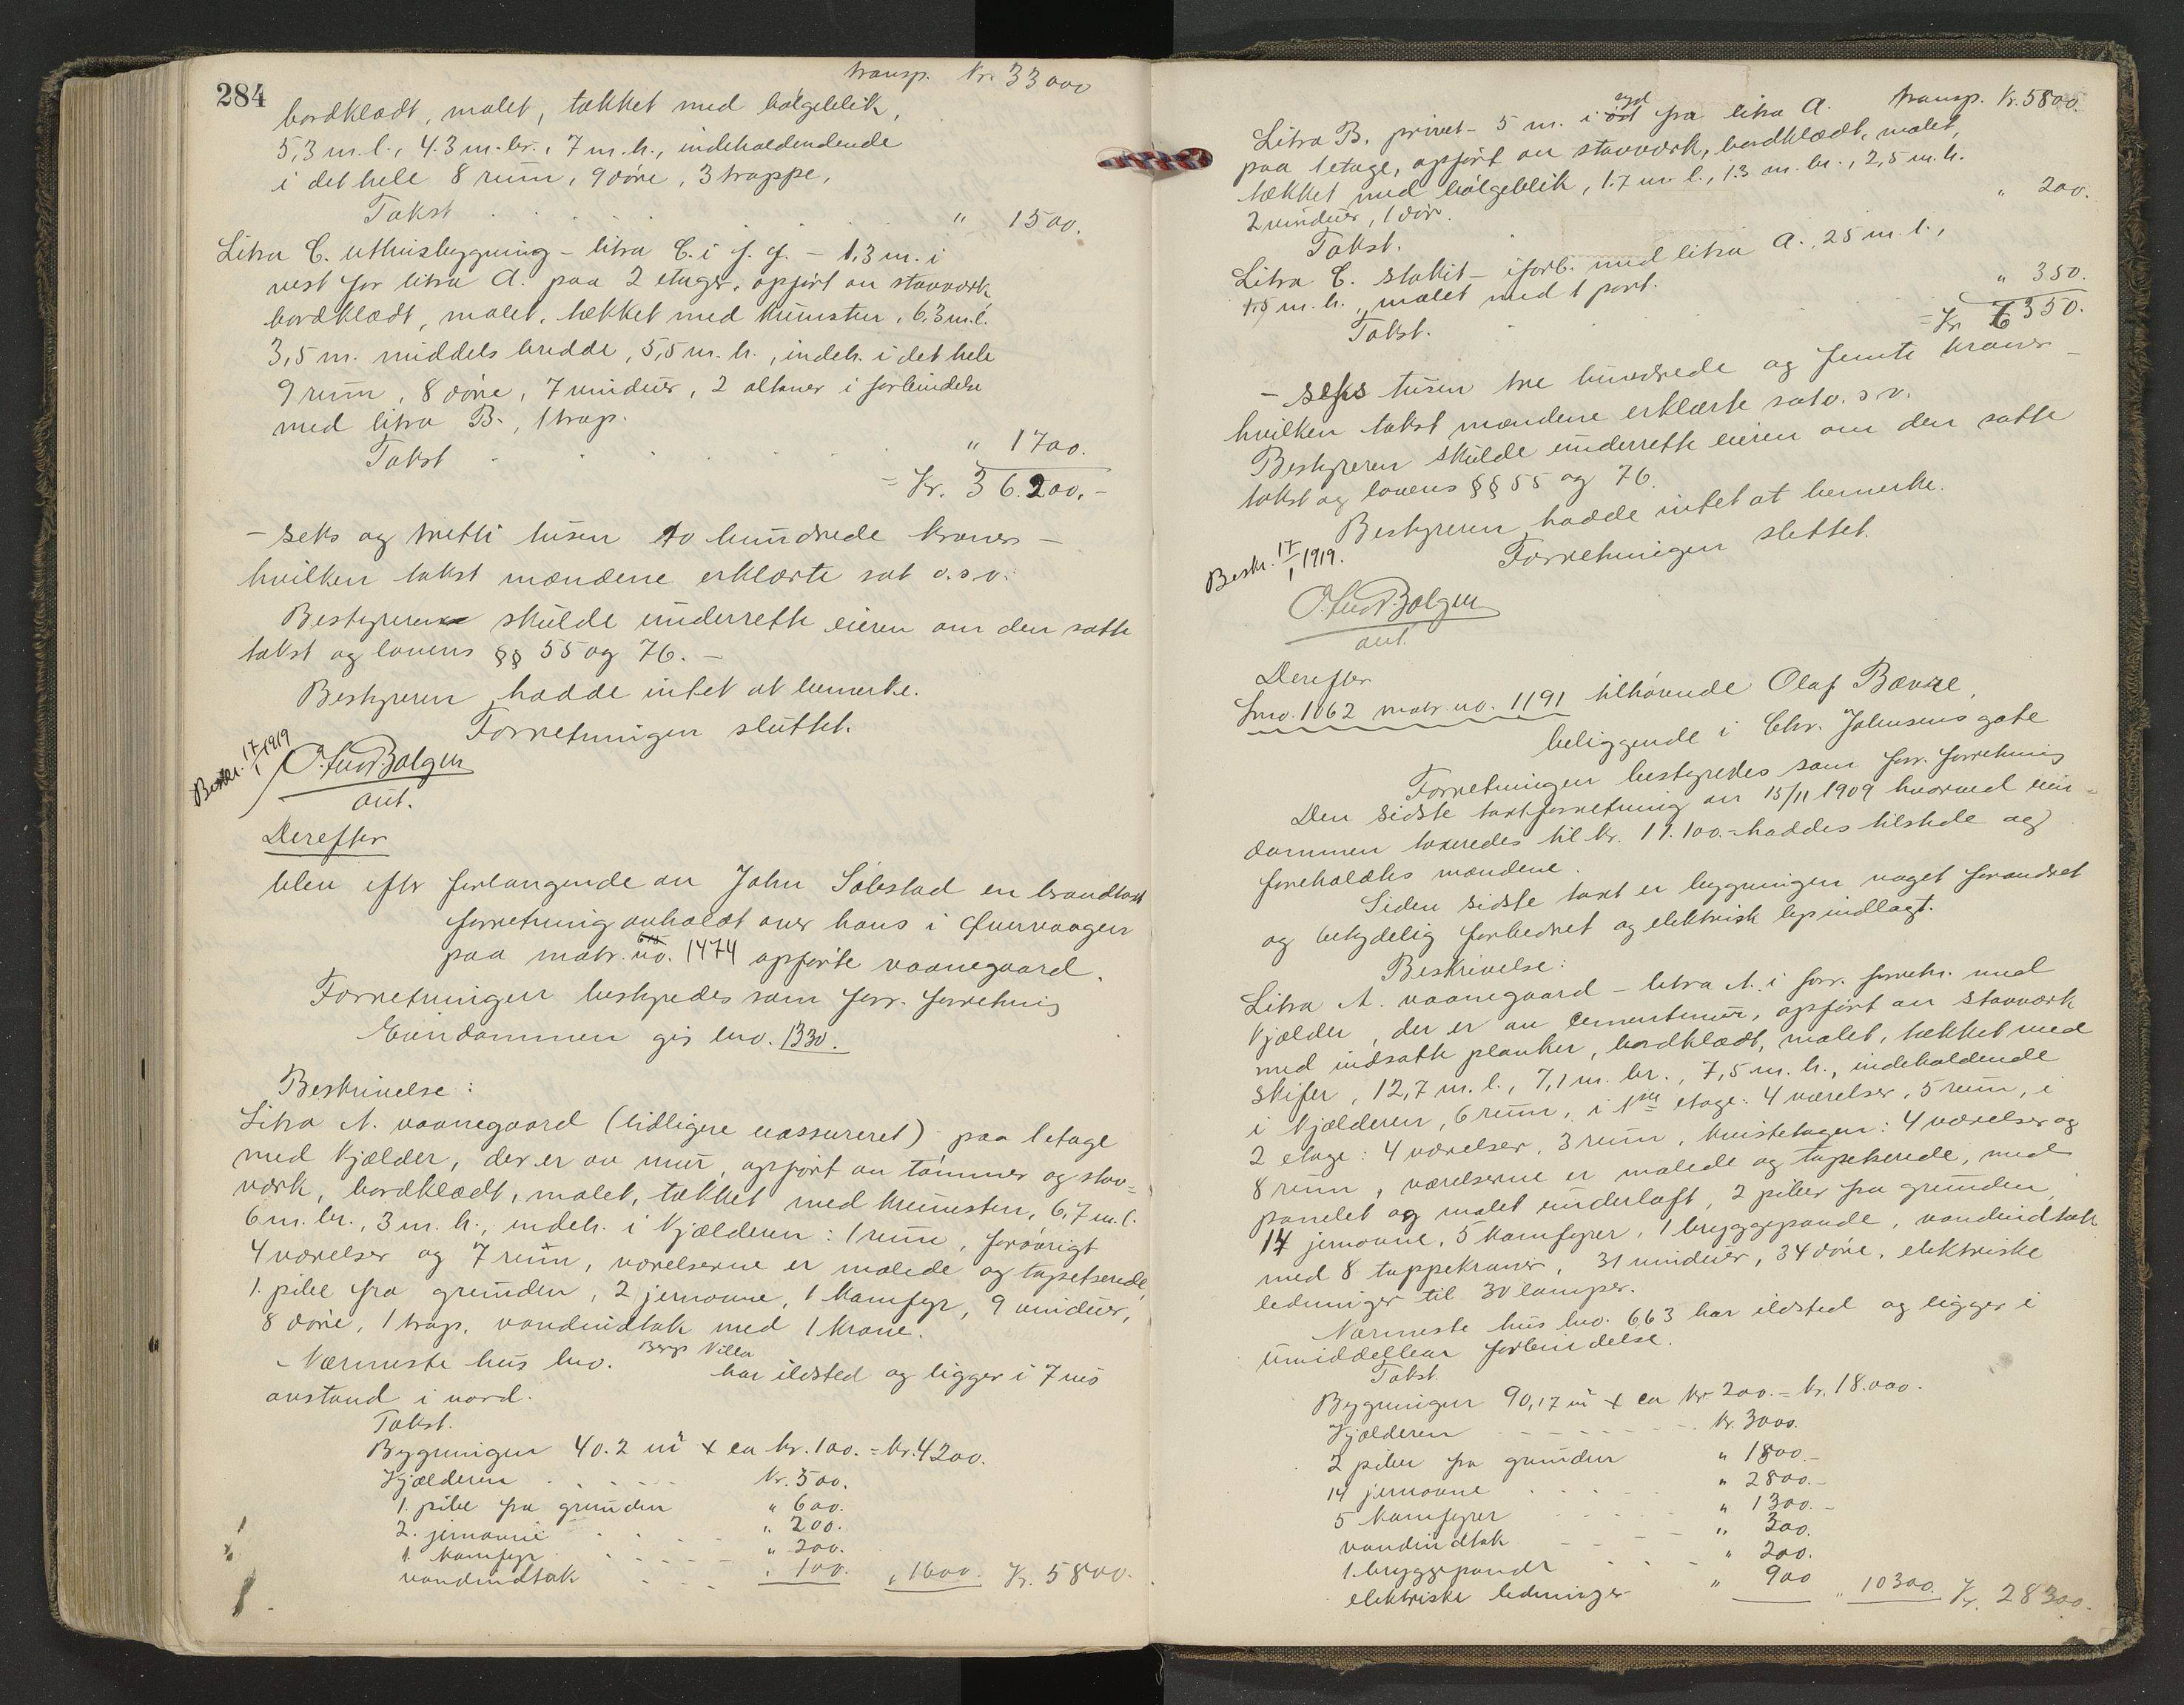 284
transp. Kr. 33000
bordklædt, malet, tækket med bølgeblik,
5,3 m. l., 4.3 m. br., 7 m. h., indeholdendende
i det hele 8 rum, 9 døre, 3 trappe,
Takst . . . . . . " 1500.
Litra C. uthusbygning – litra C. i f. f. – 1,3 m. i
vest for litra A. paa 2 etager, opført av stavverk,
bordklædt, malet, tækket med kunsten, 6,3 m. l.
3,5 m. middels bredde, 5,5 m. h., indeh. i det hele
9 rum, 8 døre, 7 vinduer, 2 altaner i forbindelse
med litra B., 1 trap.
Takst . . . . . " 1700.
= Kr. 36.200.–
– seks og tretti tusen to hundrede kroner –
hvilken takst mændene erklærte sat o. s. v.
Bestyreren skulde underrette eieren om den satte
takst og lovens §§ 55 og 76. –
Bestyreren hadde intet at bemerke.
Forretningen sluttet.
Beskr. 17/1 1919
aut.
Derefter
blev efter forlangende av John Solestad en brandtaxt
forretning avholdt over hans i
paa matr. no. 1474 opførte vaanegaard.
Forretningen bestyredes som forr. forretning
Eiendommen gis bno. 1330.
Beskrivelse:
Litra A. vaanegaard (tidligere uassureret) paa 1 etage
med kjælder, der er av mur, opført av tømmer og stav-
værk, bordklædt, malet, tækket med kunsten, 6,7 m. l.
6 m. br., 3 m. h., indeh. i kjælderen: 1 rum, forøvrigt
4 værelser og 7 rum, værelserne er malede og tapetserede,
1. pibe fra grunden, 2 jernovne, 1 komfyr, 9 vinduer,
8 døre, 1 trap, vandindtak med 1 krane.
Bergs Villa
– Nærmeste hus bno. har ildsted og ligger i 7 ms
avstand i nord.
Takst.
Bygningen 40.2 m² x ca kr. 100. = kr. 4200.
Kjælderen . . . . . kr. 500.
1. pibe fra grunden " 600.
2. jernovne . . . . " 200.
1. komfyr . . . . . " 200.
vandindtak . . . . " 100. " 1600. Kr. 5800.
transp. Kr. 5800.
syd
Litra B. privet – 5 m. i øst fra litra A.
paa 1 etage, opført av stavværk, bordklædt, malet,
tækket med bølgeblik, 1.7 m. l., 1.3 m. br., 2,5 m. h.
2 vinduer, 1 dør.
Takst. " 200.
Litra C. stakit – i forb. med litra A., 25 m. l.,
1.5 m. h., malet med 1 port.
Takst. . . . " 350.
= Kr. 6350.
– seks tusen tre hundrede og femti kroner –
hvilken takst mændene erklærte sat o. s. v.
Bestyreren skulde underrette eieren om den satte
takst og lovens §§ 55 og 76.
Bestyreren hadde intet at bemerke.
Forretningen sluttet.
Beskr. 17/1 1919.
aut.
Derefter
bno. 1062 matr. no. 1191 tilhørende Olaf Bævre,
beliggende i Chr. Johnsens gate
Forretningen bestyredes som forr. forretning
Den sidste taxtforretning av 15/11 1909 hvorved eien-
dommen taxeredes til kr. 17.100.– haddes tilstede og
foreholdtes mændene.
Siden sidste taxt er bygningen noget forandret
og betydelig forbedret og elektrisk lys indlagt.
Beskrivelse:
Litra A. vaanegaard – litra A. i forr. forretn. med
kjælder, der er av cementmur, opført av stavværk
med indsatte planker, bordklædt, malet, tækket med
skifer, 12,7 m. l., 7,1 m. br., 7,5 m. h., indeholdende
i kjælderen, 6 rum, i 1ste etage: 4 værelser, 5 rum, i
2 etage: 4 værelser, 3 rum, kvistetagen: 4 værelser og
8 rum, værelserne er malede og tapetserede, med
panelet og malet underloft, 2 piber fra grunden,
14 jernovne, 5 komfyrer, 1 bryggepande, vandindtak
med 8 tappekraner, 31 vinduer, 34 døre, elektriske
ledninger til 30 lamper.
Nærmeste hus bno. 663 har ildsted og ligger i
umiddelbar forbindelse.
Takst.
Bygningen 90,17 m² x ca kr 200. = kr. 18.000.
Kjælderen . . . . . kr. 3000.
2 piber fra grunden " 1800.–
14 jernovne . . . . " 2800.–
5 komfyrer . . . . " 1300.–
vandindtak . . . . " 300.
1. bryggepande . . . " 200.
elektriske ledninger " 900 " 10300. Kr. 28300.